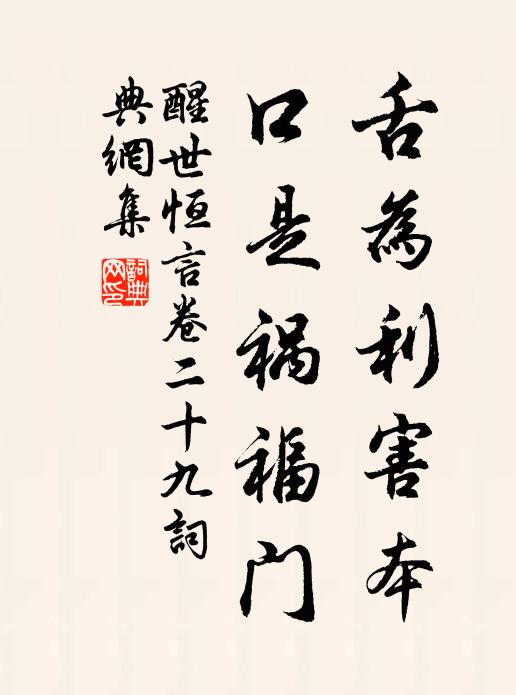 舌為利害本
口是祸福门
醒世恒言卷二十九詞
典網集
詞典
网印